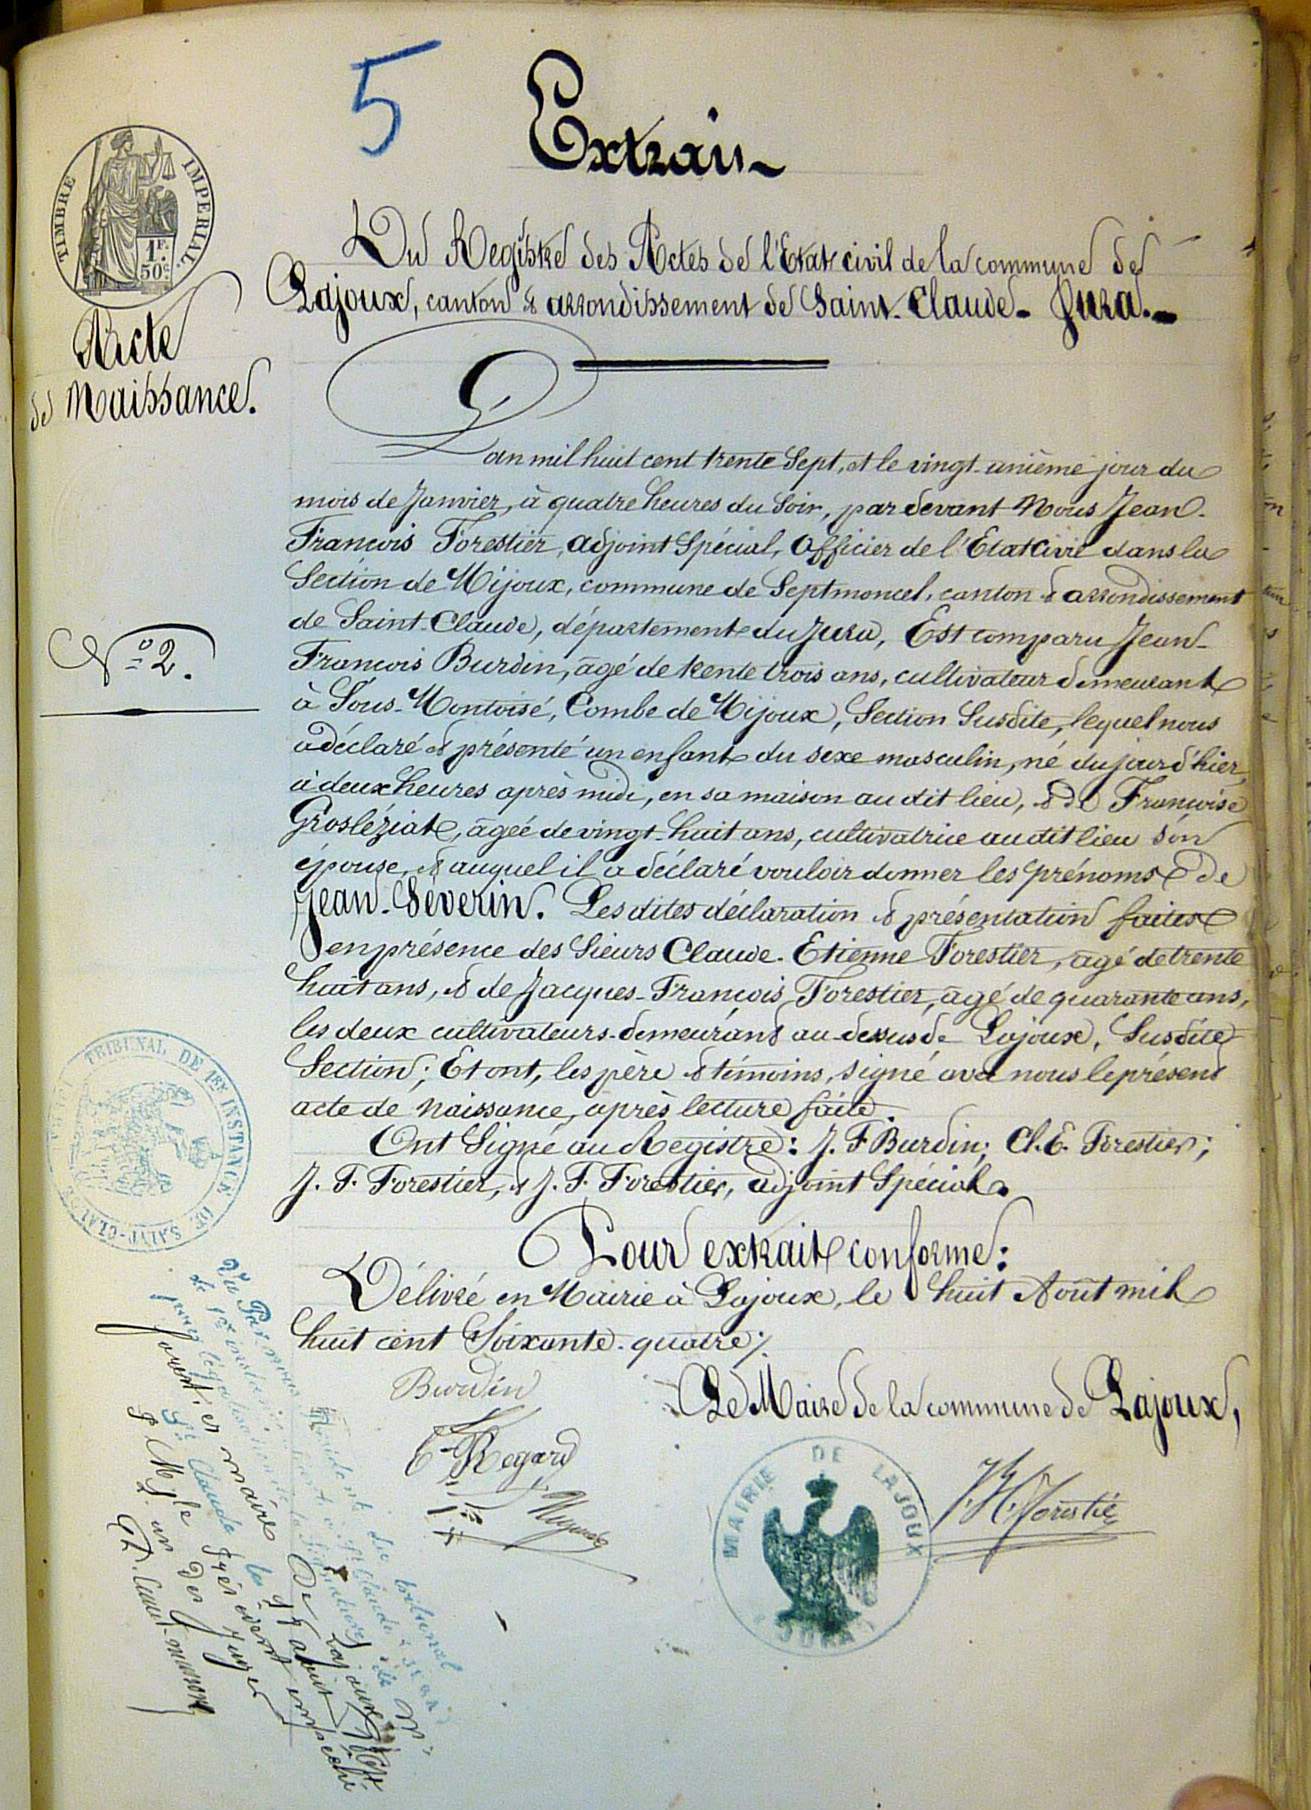 5
Extrait
TIMBRE IMPERIAL
1F.
50c.
Du Registre des Actes de l'Etat civil de la commune de
Lajoux, canton & arrondissement de Saint-Claude - Jura.
Acte
de Naissance.
N° 2.
L'an mil huit cent trente sept, et le vingt-unième jour du
mois de Janvier, à quatre heures du soir, par devant Nous Jean-
François Forestier, adjoint Spécial, Officier de l'Etat Civil dans la
Section de Mijoux, commune de Septmoncel, canton & arrondissement
de Saint-Claude, département du Jura, Est comparu Jean-
François Burdin, âgé de trente trois ans, cultivateur demeurant
à Sous-Montoisé, Combe de Mijoux, Section Susdite, lequel nous
a déclaré & présenté un enfant du sexe masculin, né du jour d'hier,
à deux heures après midi, en sa maison au dit lieu, & de Françoise
Grosléziat, âgée de vingt-huit ans, cultivatrice au dit lieu son
épouse, & auquel il a déclaré vouloir donner les prénoms de
Jean-Séverin. Les dites déclaration & présentation faites
en présence des Sieurs Claude-Etienne Forestier, âgé de trente
huit ans, & de Jacques-François Forestier, âgé de quarante ans,
les deux cultivateurs demeurant au-dessus de Lajoux, Susdite
Section; Et ont, les père & témoins, signé avec nous le présent
acte de naissance, après lecture faite.
Ont Signé au Registre: J. F. Burdin; Cl. E. Forestier;
J. F. Forestier, & J. F. Forestier, adjoint Spécial.
Pour extrait conforme:
Délivré en Mairie à Lajoux, le huit Août mil
huit cent Soixante-quatre.
Burdin
Le Maire de la commune de Lajoux,
Regard
MAIRIE DE LAJOUX
(JURA)
TRIBUNAL DE 1RE INSTANCE DE SAINT-CLAUDE
Vu Par nous Président du tribunal
de 1re instance
pour légalisation de la signature de Mr
Forestier maire de Lajoux
St Claude